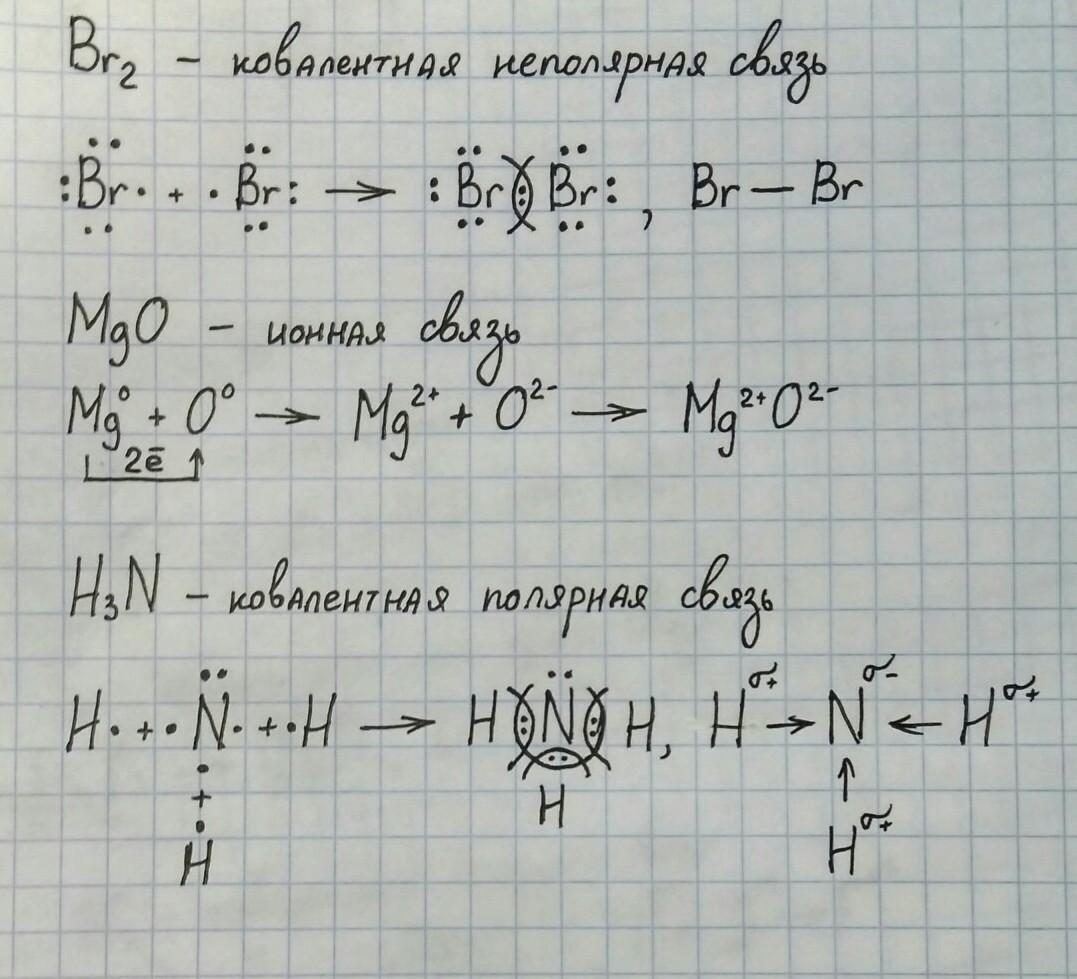 Br₂ – ковалентная неполярная связь
:Br· + ·Br: → :Br(:)Br: , Br — Br
MgO – ионная связь
Mg⁰ + O⁰ → Mg²⁺ + O²⁻ → Mg²⁺O²⁻
2ē
H₃N – ковалентная полярная связь
H· + ·N· + ·H → H(:)N(:)H, H^σ+ → N^σ- ← H^σ+
+
H
H
↑
H^σ+